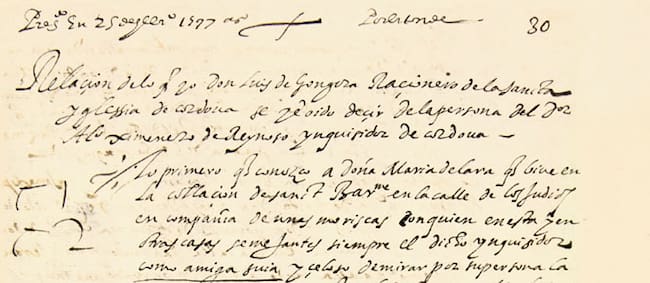 Pres.da En 25 de febr.o 1597 as. Por el conde 30
Relacion de lo q yo Don Luis de Gongora Racionero de la sancta
yglessia de cordoua se y e oido decir de la persona del Dor
Alo Ximenez de Reynoso ynquisidor de cordoua
Lo primero q conozco a doña Maria de lara q biue en
la collacion de sanct Barme en la calle de los Judios
en compañia de unas moriscas con quien en esta y en
otras casas semejantes siempre el dicho ynquisidor
como amiga suia y çeloso de mirar por su persona la
1
2